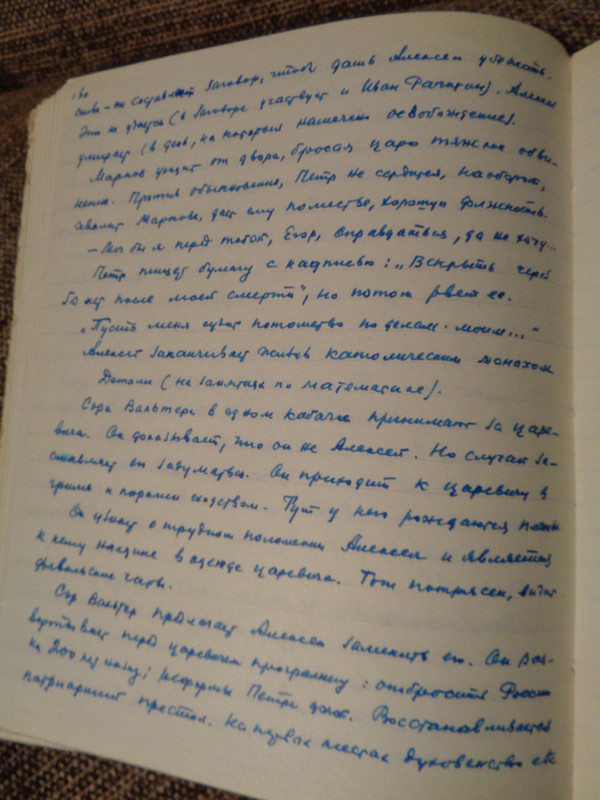 130
составляет заговор, чтоб дать Алексею убежать.
Это не удаётся (в заговоре участвует и Иван Рапитан). Алексей
умирает (в день, на который намечено освобождение).
Марков уходит от двора, бросая царю тяжкое обви-
нение. Против обыкновения, Петр не сердится, наоборот,
хвалит Маркова, дает ему поместье, хорошую должность.
— Мог бы я перед тобой, Егор, оправдаться, да не хочу...
Петр пишет бумагу с надписью: „Вскрыть через
50 лет после моей смерти", но потом рвет ее.
„Пусть меня судит потомство по делам моим..."
Алексей заканчивает жизнь католическим монахом
Детали (на занятиях по математике).
Сэра Вальтера в одном кабачке принимают за царе-
вича. Он доказывает, что он не Алексей. Но случай за-
ставляет его задуматься. Он приходит к царевичу в
гриме и поражен сходством. Тут у него рождаются планы
Он узнает о трудном положении Алексея и является
к нему наедине в одежде царевича. Тот потрясен, видит
дьявольские чары.
Сэр Вальтер предлагает Алексею заменить его. Он раз-
вертывает перед царевичем программу: отбросить Россию
на 200 лет назад; реформы Петра долой. Восстанавливается
патриарший престол. На первых местах духовенство etc